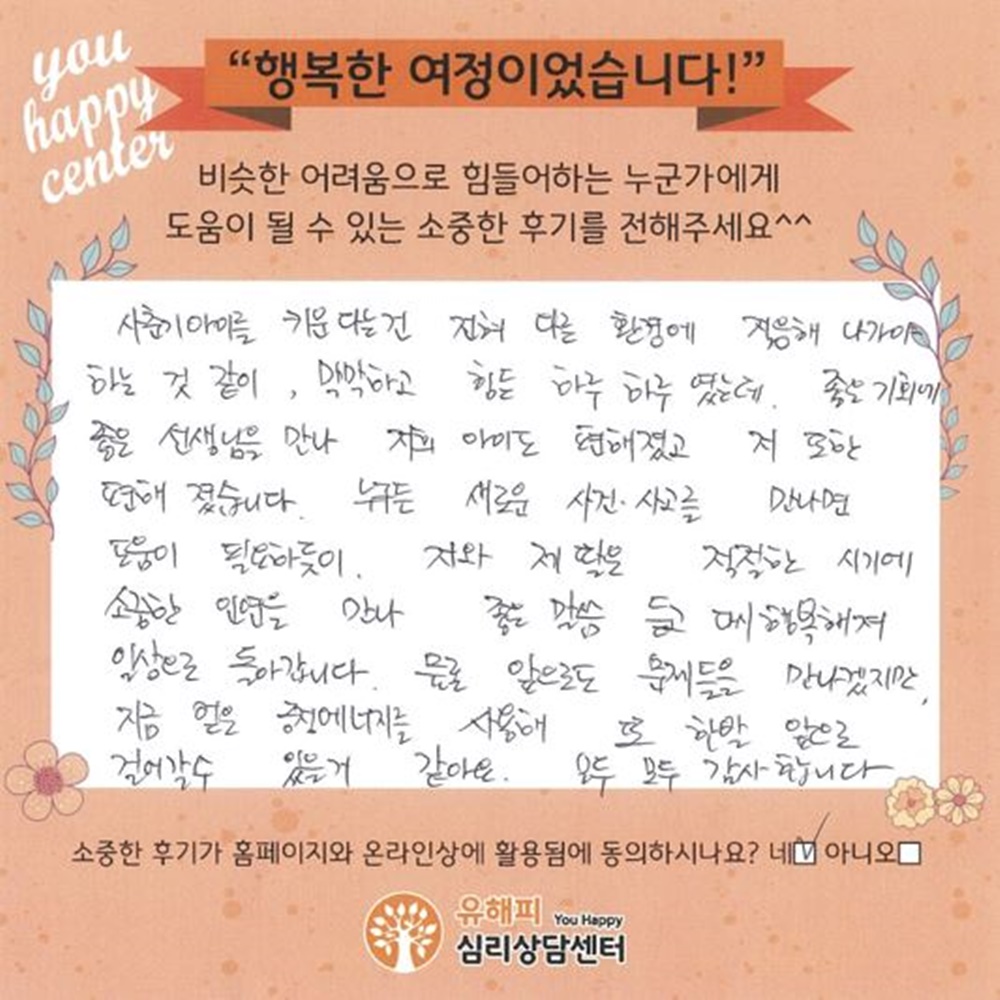 you
happy
center
“행복한 여정이었습니다!”
비슷한 어려움으로 힘들어하는 누군가에게
도움이 될 수 있는 소중한 후기를 전해주세요^^
사춘기아이를 키운다는건 전혀 다른 환경에 적응해 나가야
하는 것 같이, 막막하고 힘든 하루 하루 였는데. 좋은기회에
좋은 선생님을 만나 저희 아이도 편해졌고 저 또한
편해 졌습니다. 누구든 새로운 사건·사고를 만나면
도움이 필요하듯이. 저와 제 딸은 적절한 시기에
소중한 인연을 만나 좋은 말씀 듣고 다시행복해져
일상으로 돌아갑니다. 물론 앞으로도 문제들을 만나겠지만,
지금 얻은 긍정에너지를 사용해 또 한발 앞으로
걸어갈수 있을거 같아요. 모두 모두 감사합니다
소중한 후기가 홈페이지와 온라인상에 활용됨에 동의하시나요? 네☑ 아니오□
유해피 You Happy
심리상담센터